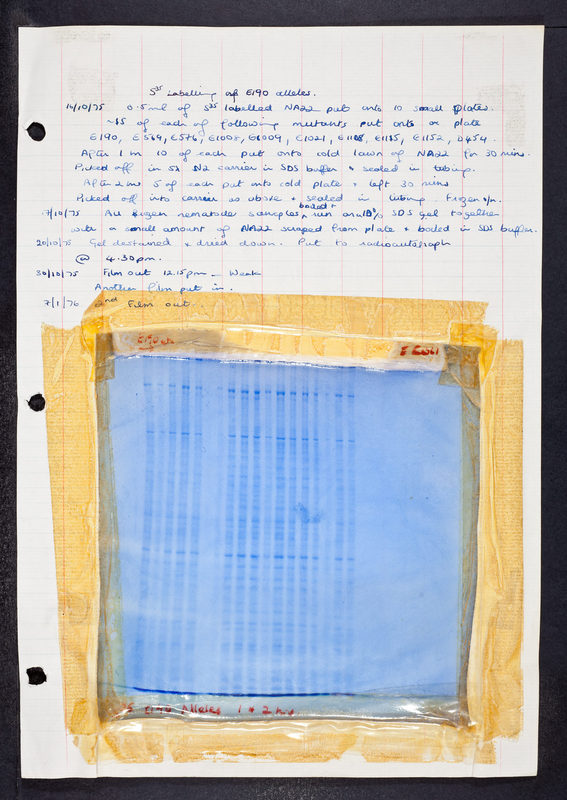 S³⁵ Labelling of E190 alleles.
14/10/75 0.5ml of S³⁵ labelled NA22 put onto 10 small plates.
~55 of each of following mutants put onto a plate
E190, E569, E576, E1008, E1009, E1021, E1108, E1135, E1152, D454.
After 1 hr 10 of each put onto cold lawn of NA22 for 30 mins.
Picked off in 5λ N2 carrier in SDS buffer + sealed in tubing.
After 2 hrs 5 of each put onto cold plate + left 30 mins
Picked off into carrier as above + sealed in tubing. Frozen o/n.
17/10/75 All frozen nematode samples boiled + run on a 10% SDS gel together
with a small amount of NA22 scraped from plate + boiled in SDS buffer.
20/10/75 Gel destained & dried down. Put to radioautograph
@ 4.30pm.
30/10/75 Film out 12.15pm – Weak
Another film put in.
7/1/76 2nd Film out.
E190
E Coli
E190 Alleles 1 + 2 hrs